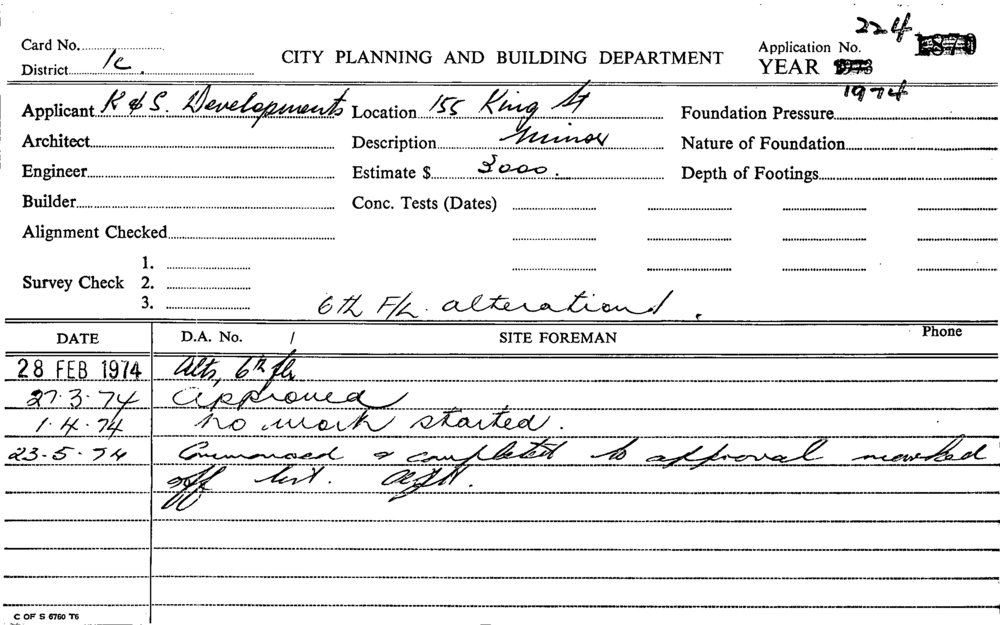 224
Card No.
District 1c.
CITY PLANNING AND BUILDING DEPARTMENT
Application No.
YEAR 1973
1974
Applicant K & S. Developments Location 155 King St Foundation Pressure
Architect Description Minor Nature of Foundation
Engineer Estimate $ 3000. Depth of Footings
Builder Conc. Tests (Dates)
Alignment Checked
1.
Survey Check 2.
3.
6th F/L. alterations.
DATE D.A. No. / SITE FOREMAN Phone
28 FEB 1974 Alts, 6th flr
27.3.74 Approved
1.4.74 no work started.
23-5-74 Commenced & completed to approval marked
off list.
C OF S 6760 T6